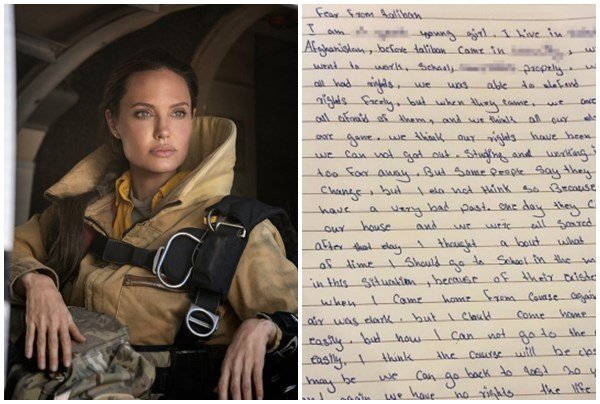 Fear From Taliban
I am young girl. I Live in
Afghanistan, before taliban came in
went to work, School, properly
all had rights, we was able to defend
rights Freely, but when they came, we are
all afraid of them, and we think all our
are gone. we think our rights have been
we can not got out. Studing and working
too far away, But some people Say they
change, but I do not think So Because
have a very bad past. one day they
our house and we were all Scared
after that day I thought a bout what
of time I Should go to School in the
in this Situation, because of their
when I came home From course again
air was dark. but I Could come home
easily. but now I can not go to the
easily, I think the course will be
may be we can go back to last 20
again we have no rights the life